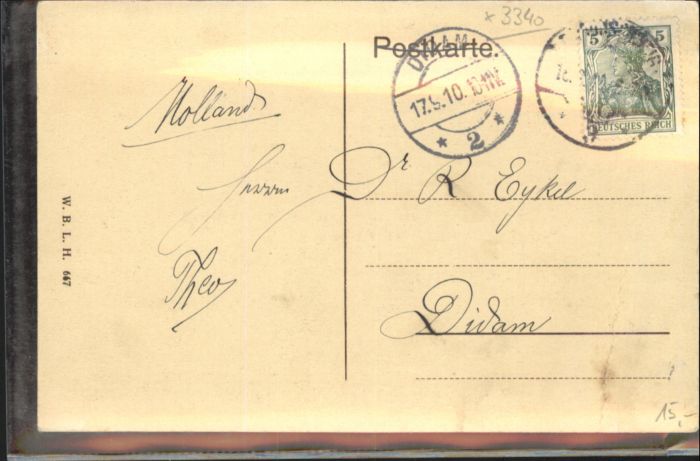 x 3340
Postkarte.
DIDAM
17.5.10. 10-11V.
* 2 *
5 5
DEUTSCHES REICH
Holland
Herrn Dr R Eykel
Theo
Didam
W. B. L. H. 667
15,-